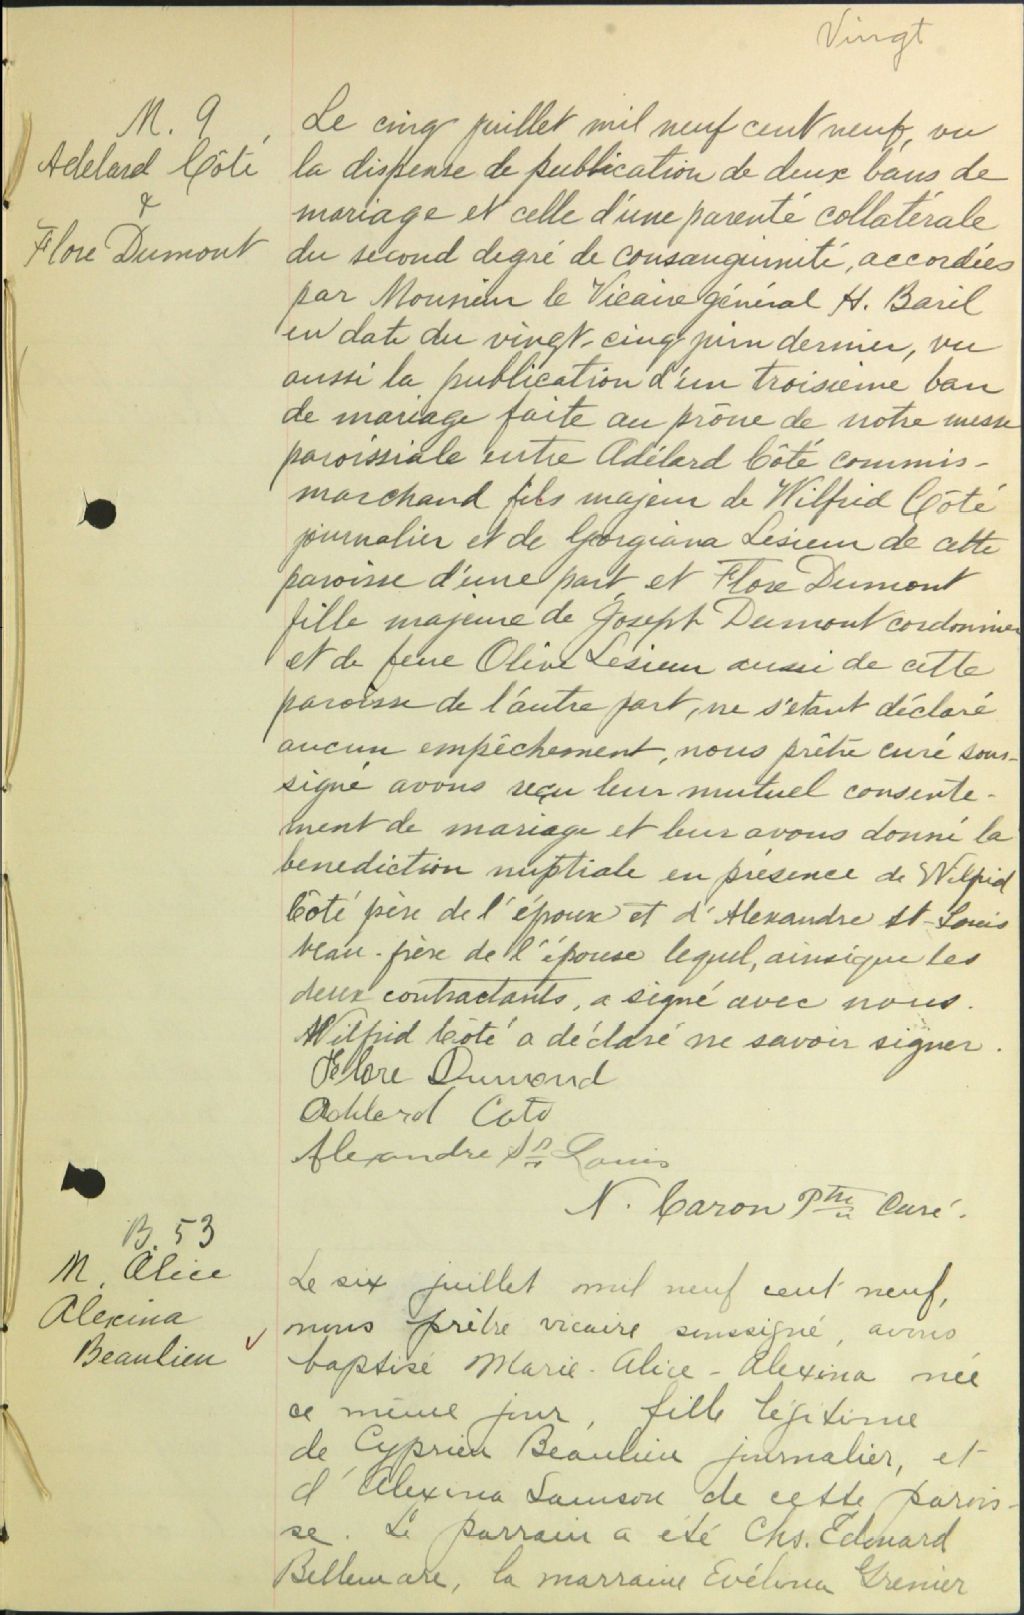 Vingt
M. 9
Adelard Côté
&
Flore Dumont
Le cinq juillet mil neuf cent neuf, vu
la dispense de publication de deux bans de
mariage et celle d'une parenté collatérale
du second degré de consanguinité, accordées
par Monsieur le Vicaire général H. Baril
en date du vingt-cinq juin dernier, vu
aussi la publication d'un troisième ban
de mariage faite au prône de notre messe
paroissiale entre Adélard Côté commis-
marchand fils majeur de Wilfrid Côté
journalier et de Georgiana Lesieur de cette
paroisse d'une part, et Flore Dumont
fille majeure de Joseph Dumont cordonnier
et de feue Olive Lesieur aussi de cette
paroisse de l'autre part, ne s'etant déclaré
aucun empêchement, nous prêtre curé sous-
signé avons reçu leur mutuel consente-
ment de mariage et leur avons donné la
benediction nuptiale en présence de Wilfrid
Côté père de l'époux et d'Alexandre St-Louis
beau-frère de l'épouse lequel, ainsi que les
deux contractants, a signé avec nous.
Wilfrid Côté a déclaré ne savoir signer.
Flore Dumond
Adélard Coté
Alexandre St Louis
N. Caron Ptre Curé.
B. 53
M. Alice
Alexina
Beaulieu
Le six juillet mil neuf cent neuf,
nous prêtre vicaire soussigné, avons
baptisé Marie-Alice-Alexina née
ce même jour, fille légitime
de Cyprien Beaulieu journalier, et
d'Alexina Samson de cette parois-
se. Le parrain a été Chs. Edouard
Bellemare, la marraine Evélina Grenier